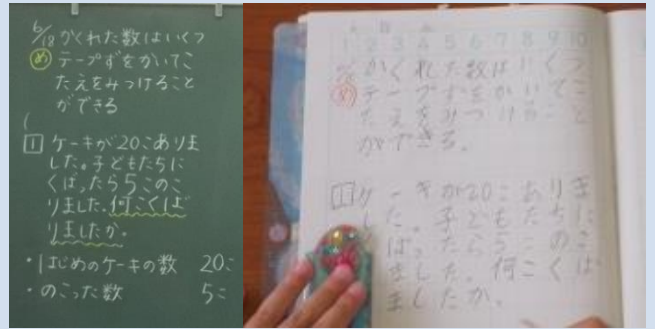 6/18 かくれた数はいくつ
め テープずをかいてこ
たえをみつけること
ができる
(
1 ケーキが20こありま
した。子どもたちに
くばったら5このこ
りました。何こくば
りましたか。
・はじめのケーキの数 20こ
・のこった数 5こ
1 2 3 4 5 6 7 8 9 10
かくれた数はいくつ
め テープずをかいてこ
たえをみつけること
ができる。
1 ケーキが20こありま
した。子どもたちに
ばったら5このこ
ました。何こくば
ましたか。